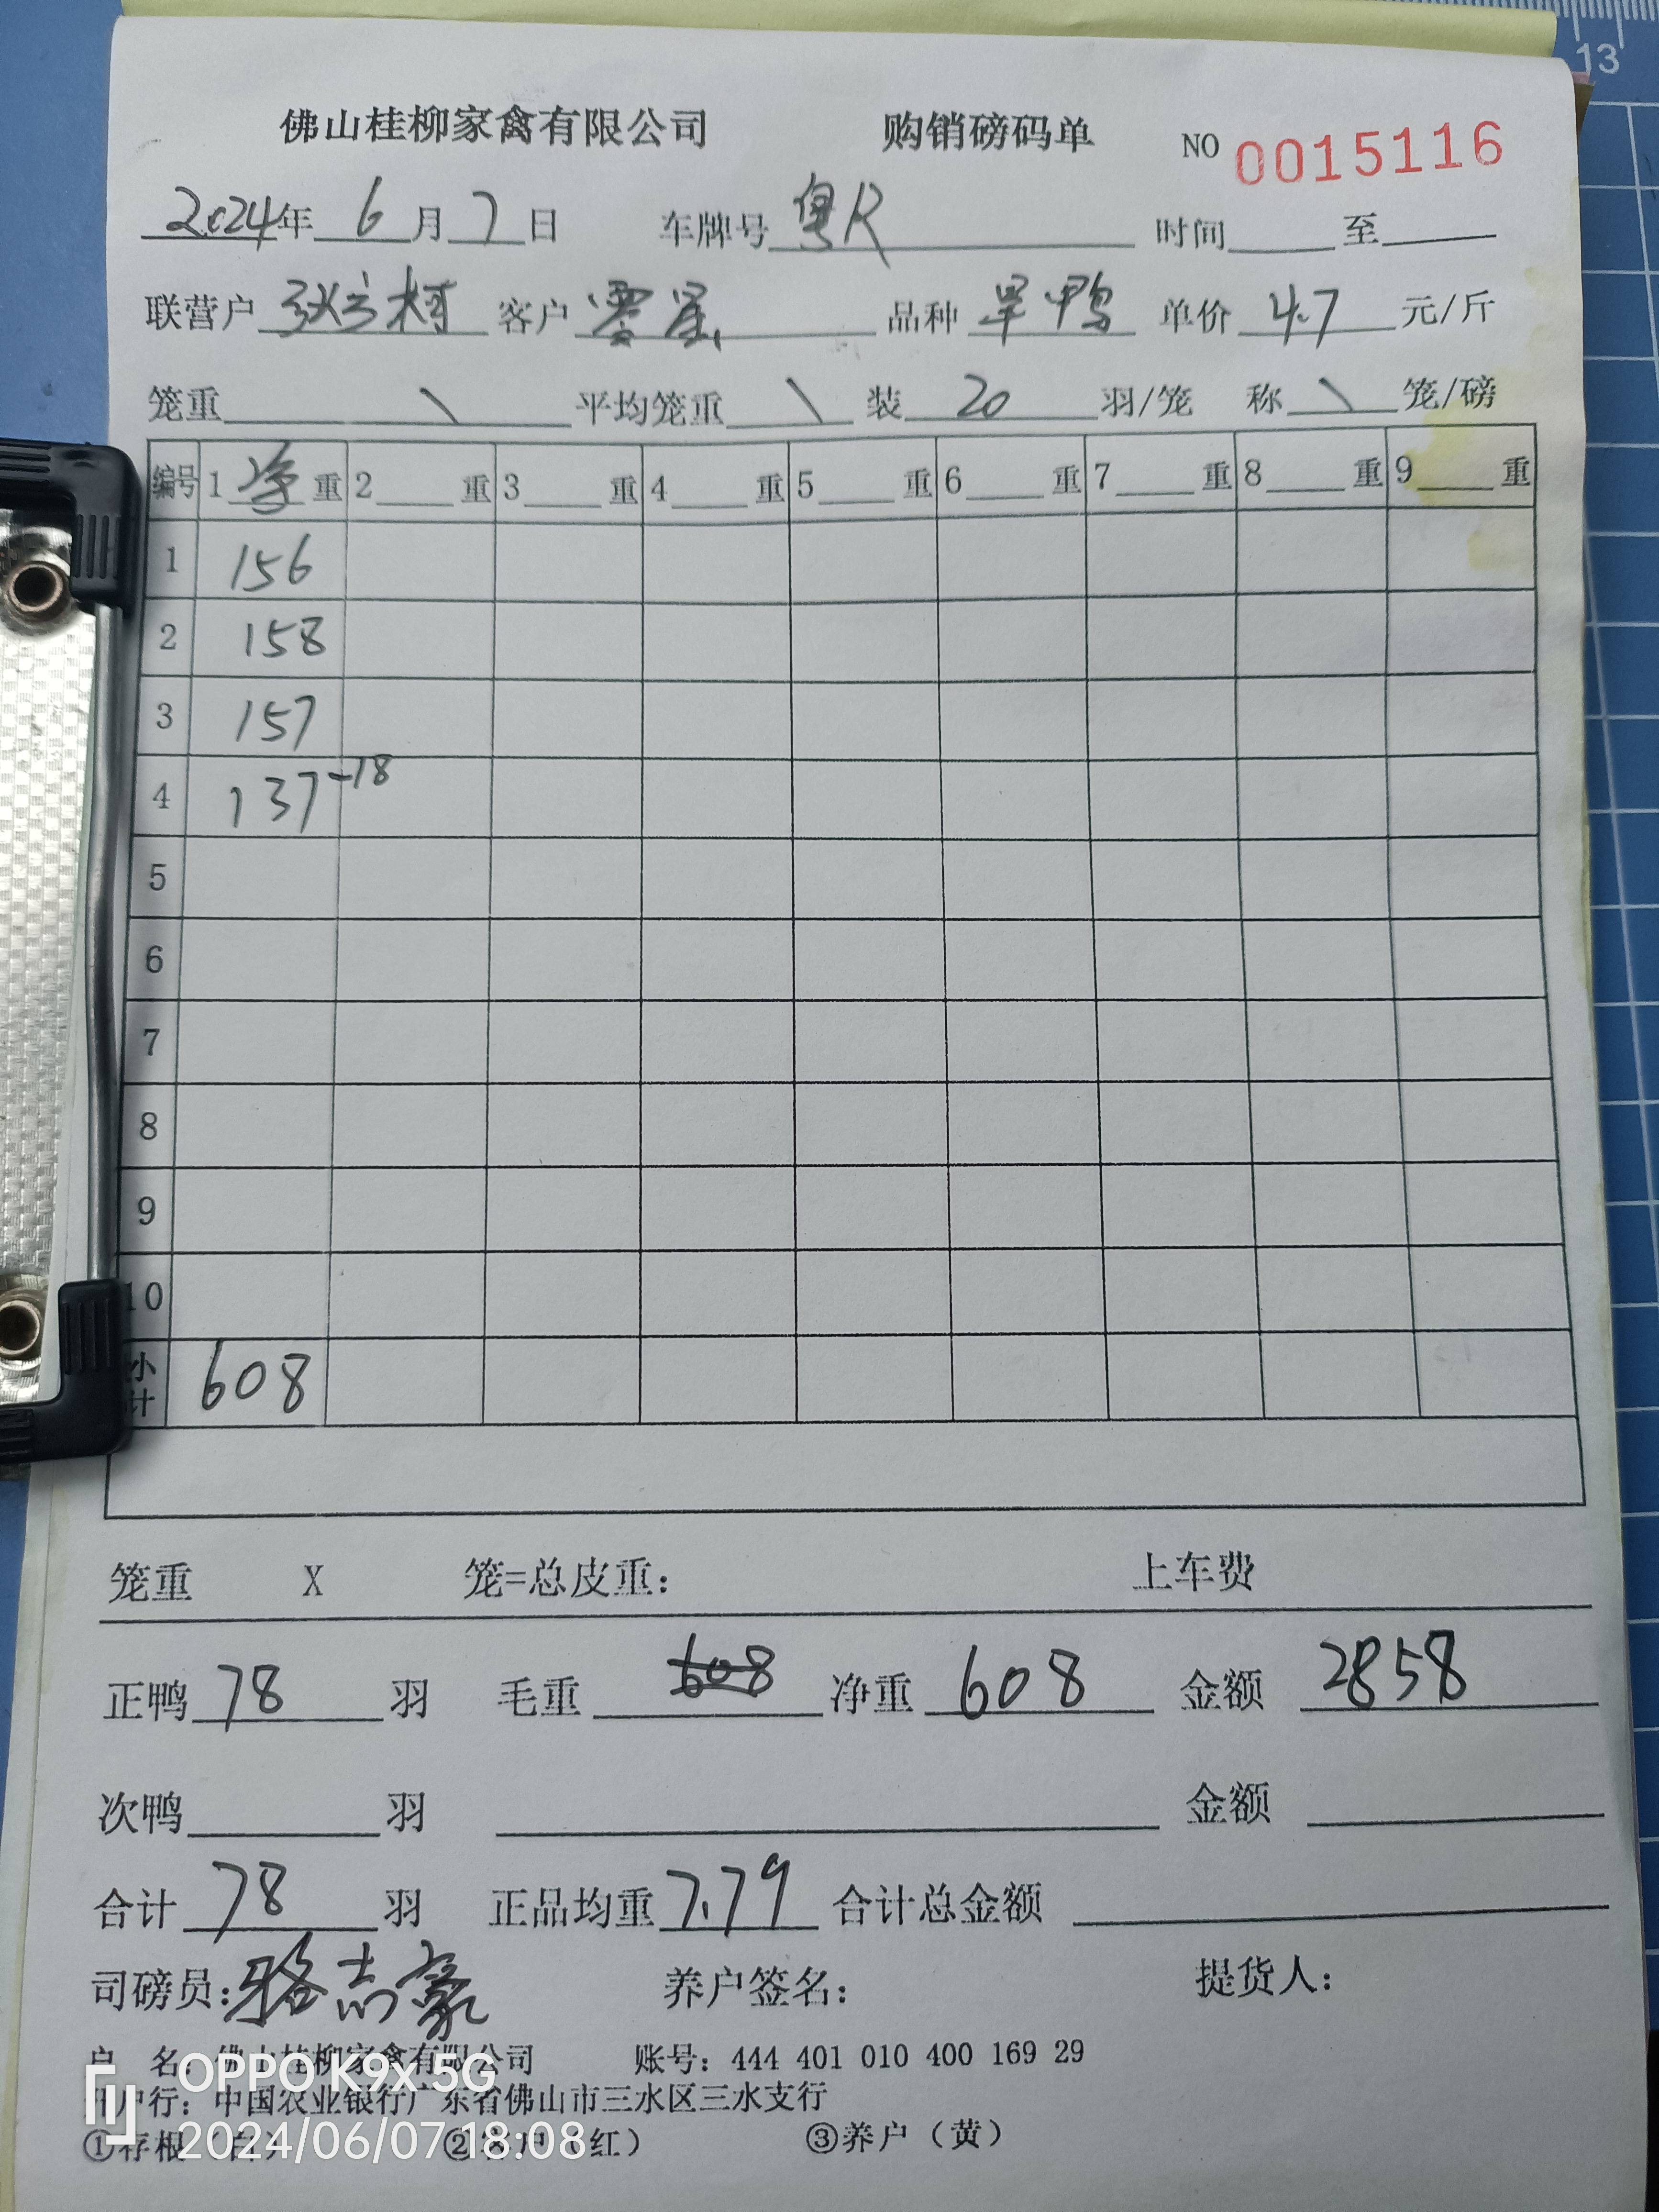 13
佛山桂柳家禽有限公司 购销磅码单 NO 0015116
2024年 6月 7日 车牌号 粤R 时间 至
联营户 客户 零星 品种 旱鸭 单价 4.7 元/斤
笼重 \ 平均笼重 \ 装 20 羽/笼 称 \ 笼/磅
编号 1 净 重 2 重 3 重 4 重 5 重 6 重 7 重 8 重 9 重
1 156
2 158
3 157
4 137-18
5
6
7
8
9
10
小计 608
笼重 X 笼=总皮重： 上车费
正鸭 78 羽 毛重 608 净重 608 金额 2858
次鸭 羽 金额
合计 78 羽 正品均重 7.79 合计总金额
司磅员：骆志豪 养户签名： 提货人：
户 名：佛山桂柳家禽有限公司 账号：444 401 010 400 169 29
开户行：中国农业银行广东省佛山市三水区三水支行
①存根（白） ②客户（红） ③养户（黄）
OPPO K9x 5G
2024/06/07 18:08